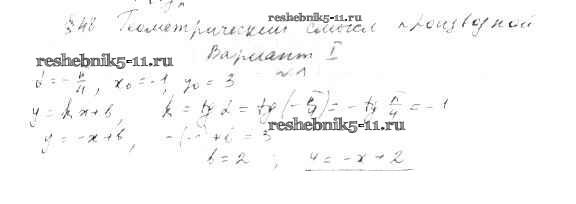 §48 Геометрический смысл производной
reshebnik5-11.ru
Вариант I
reshebnik5-11.ru
№1
α = -π/4, x₀ = -1, y₀ = 3
y = kx + b, k = tg α = tg(-π/4) = -tg π/4 = -1
reshebnik5-11.ru
y = -x + b, -(-1) + b = 3
b = 2; y = -x + 2